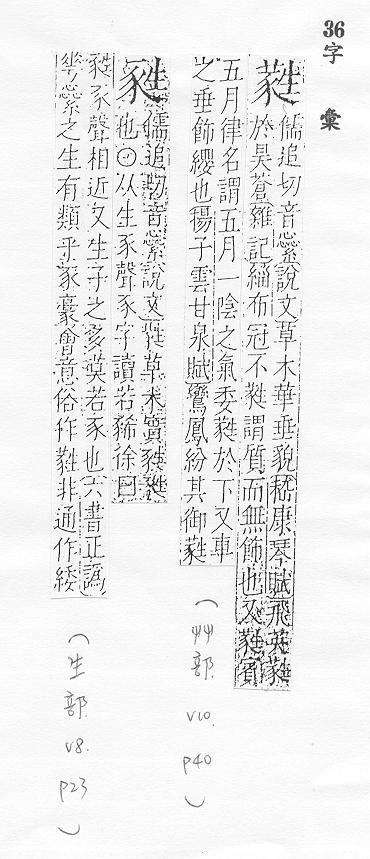 36 字彙
蕤 儒追切音蘂說文草木華垂貌嵇康琴賦飛英蕤
於昊蒼雜記緇布冠不蕤謂質而無飾也又蕤賓
五月律名謂五月一陰之氣委蕤於下又車
之垂飾纓也揚子雲甘泉賦鸞鳳紛其御蕤
(艸部 V10. P40)
㽔 儒追切音蘂說文㽔草木實㽔㽔
也曰从生豕聲豕字讀若豨徐曰
豨豕聲相近又生子之多莫若豕也六書正譌
華蘂之生有類乎豕豪會意俗作蕤非通作緌
(生部 V8. P23)